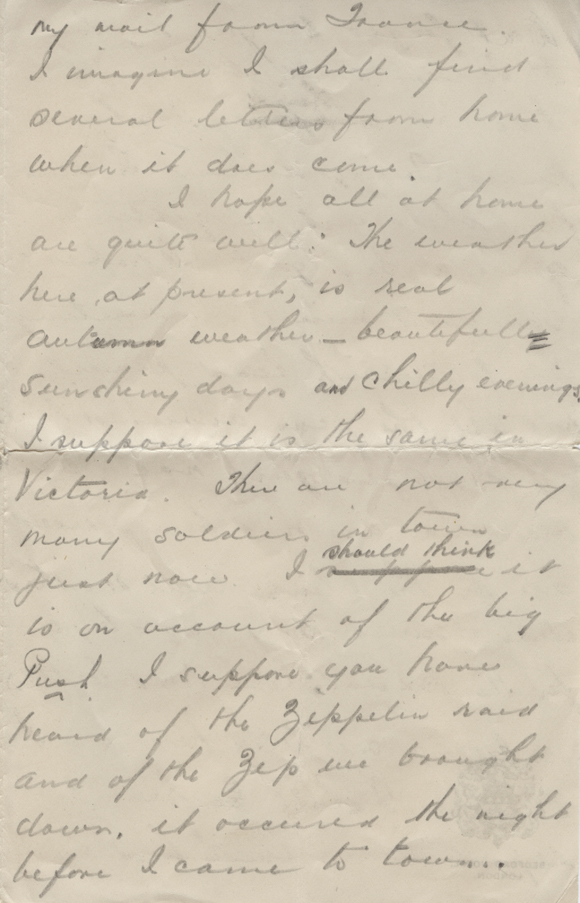 my mail from France.
I imagine I shall find
several letters from home
when it does come.
I hope all at home
are quite well. The weather
here, at present, is real
autumn weather - beautifully
sunshiny days and chilly evenings.
I suppose it is the same in
Victoria. There are not very
many soldiers in town
should think
just now. I suppose it
is on account of the big
Push I suppose you have
heard of the Zeppelin raid
and of the Zep we brought
down, it occured the night
before I came to town.
LONDON.